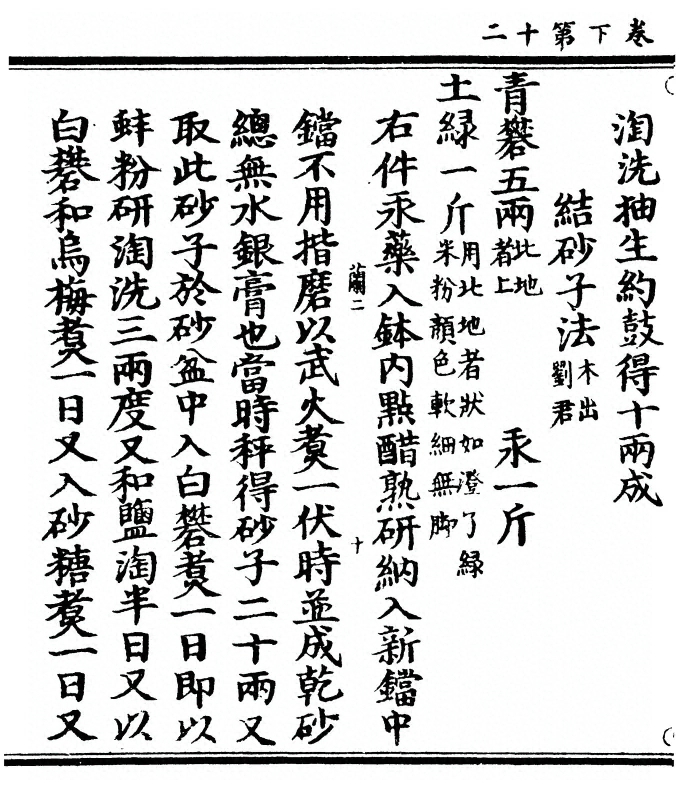 卷下第十二
淘洗抽生約鼓得十兩成
結砂子法本出劉君
青礬五兩此地者上 汞一斤
土綠一斤用此地者狀如澄了綠米粉顏色軟細無腳
右件汞藥入鉢內點醋熟研納入新鐺中
蘭二 十
鐺不用揩磨以武火煑一伏時並成乾砂
總無水銀膏也當時秤得砂子二十兩又
取此砂子於砂盆中入白礬煑一日即以
蚌粉研淘洗三兩度又和鹽淘半日又以
白礬和烏梅煑一日又入砂糖煑一日又